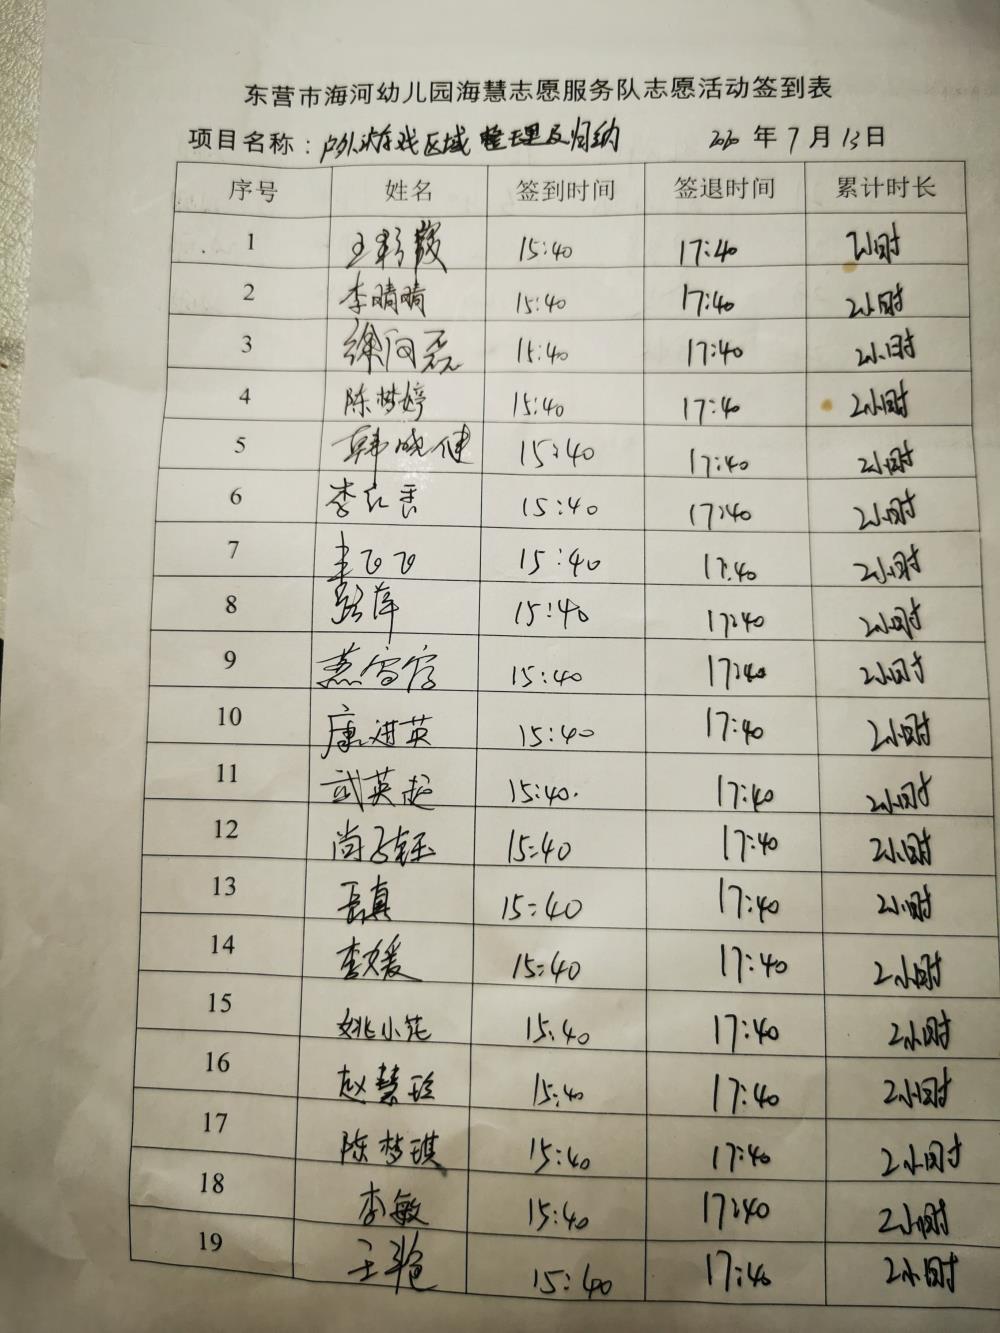 东营市海河幼儿园海慧志愿服务队志愿活动签到表
项目名称：户外游戏区域整理及归纳 2020 年 7 月 13 日
序号 姓名 签到时间 签退时间 累计时长
1 王彩霞 15:40 17:40 2小时
2 李晴晴 15:40 17:40 2小时
3 徐向磊 15:40 17:40 2小时
4 陈梦婷 15:40 17:40 2小时
5 韩晓健 15:40 17:40 2小时
6 李红香 15:40 17:40 2小时
7 王飞飞 15:40 17:40 2小时
8 张萍 15:40 17:40 2小时
9 燕 15:40 17:40 2小时
10 康进英 15:40 17:40 2小时
11 武英起 15:40. 17:40 2小时
12 尚子钰 15:40 17:40 2小时
13 真 15:40 17:40 2小时
14 李媛 15:40 17:40 2小时
15 姚小花 15:40 17:40 2小时
16 赵慧珍 15:40 17:40 2小时
17 陈梦琪 15:40 17:40 2小时
18 李敏 15:40 17:40 2小时
19 王艳 15:40 17:40 2小时